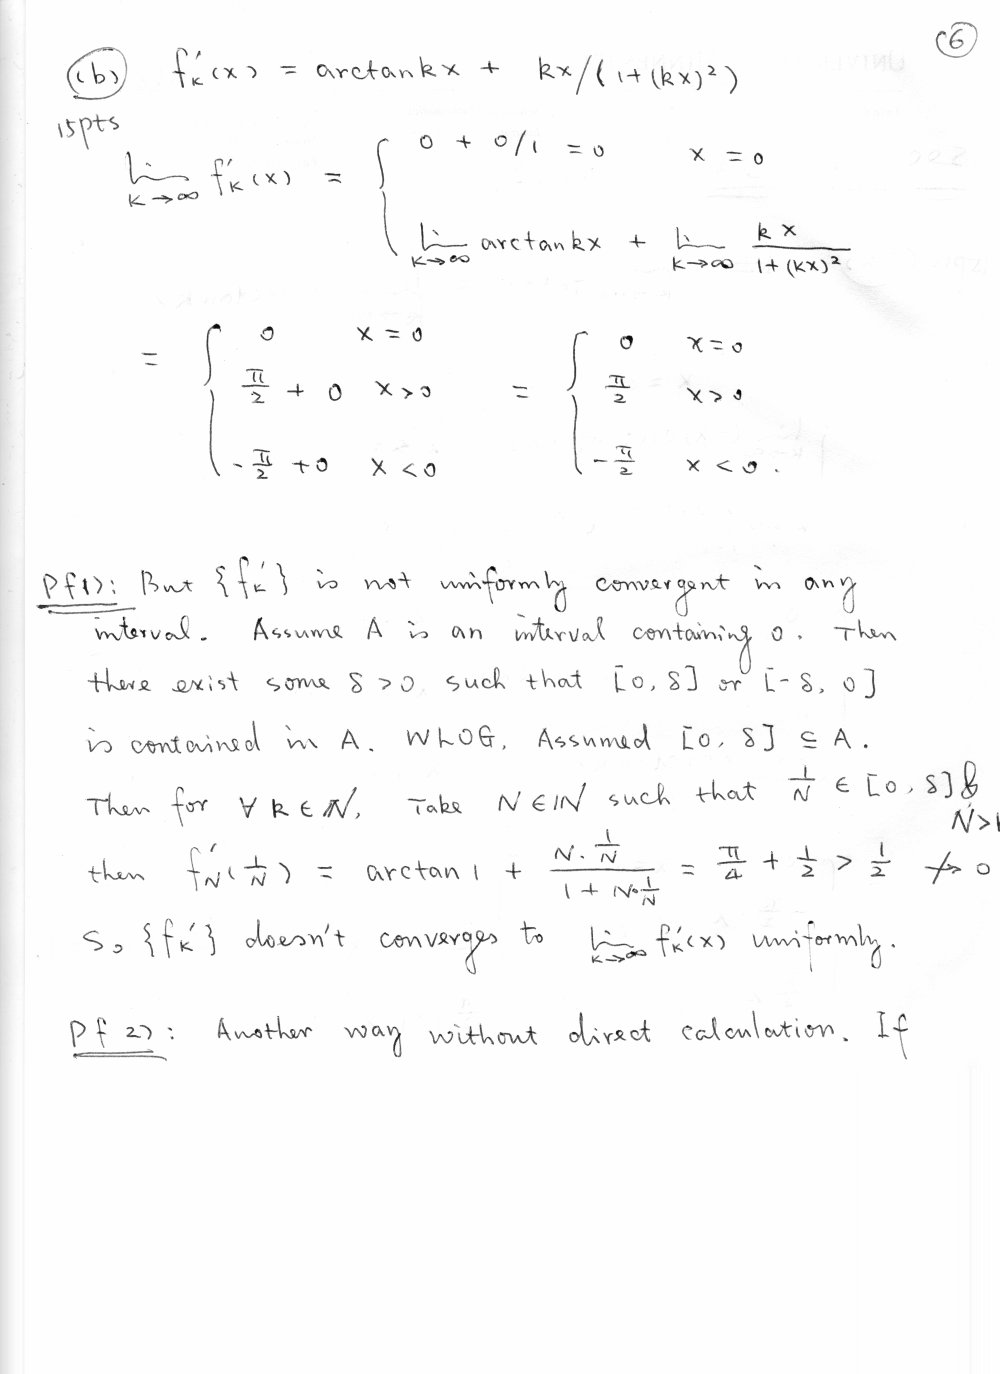 (6)
(b) f'ₖ(x) = arctan kx + kx/(1+(kx)²)
15pts
lim_{k→∞} f'ₖ(x) = { 0 + 0/1 = 0 x = 0
lim_{k→∞} arctan kx + lim_{k→∞} kx/(1+(kx)²)
= { 0 x = 0 = { 0 x = 0
π/2 + 0 x > 0 π/2 x > 0
-π/2 + 0 x < 0 -π/2 x < 0.
Pf 1): But {f'ₖ} is not uniformly convergent in any
interval. Assume A is an interval containing 0. Then
there exist some δ > 0 such that [0, δ] or [-δ, 0]
is contained in A. WLOG, Assumed [0, δ] ⊆ A.
Then for ∀ k ∈ N, Take N ∈ IN such that 1/N ∈ [0, δ] &
N > 1
then f'_N(1/N) = arctan 1 + (N·1/N)/(1 + N·1/N) = π/4 + 1/2 > 1/2 ↛ 0
So {f'ₖ} doesn't converges to lim_{k→∞} f'ₖ(x) uniformly.
Pf 2): Another way without direct calculation. If